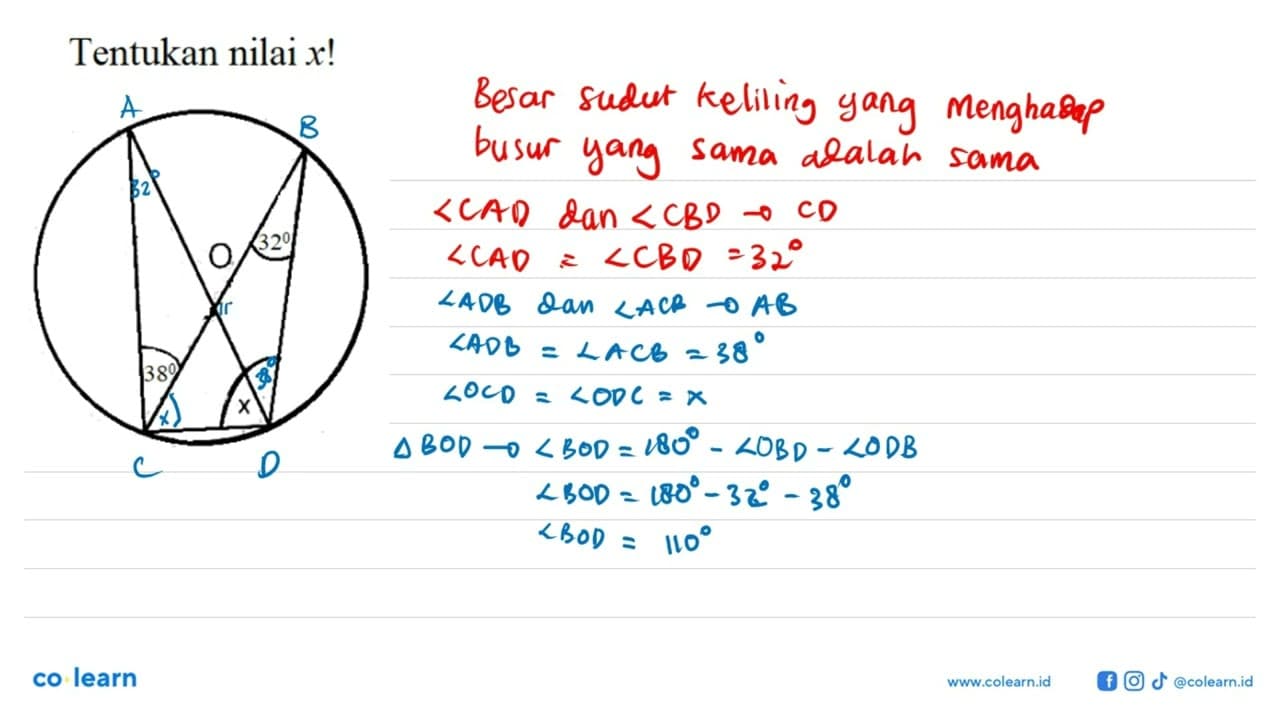 Tentukan nilai x!
A
B
32°
O
32⁰
38⁰
38°
x
x
C
D
Besar sudut keliling yang Menghadap
busur yang sama adalah sama
∠CAD dan ∠CBD → CD
∠CAD = ∠CBD = 32°
∠ADB dan ∠ACB → AB
∠ADB = ∠ACB = 38°
∠OCD = ∠ODC = x
△BOD → ∠BOD = 180° - ∠OBD - ∠ODB
∠BOD = 180° - 32° - 38°
∠BOD = 110°
co learn
www.colearn.id
@colearn.id